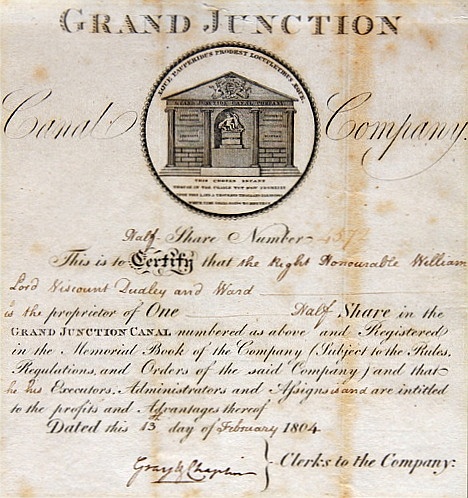 GRAND JUNCTION
ÆQUE PAUPERIBUS PRODEST LOCUPLETIBUS ÆQUE
GRAND JUNCTION CANAL COMPANY
Canal Company.
Half Share Number
This is to Certify that the Right Honourable William
Lord Viscount Dudley and Ward
is the proprietor of One Half Share in the
GRAND JUNCTION CANAL numbered as above and Registered
in the Memorial Book of the Company (Subject to the Rules,
Regulations, and Orders of the said Company) and that
he his Executors, Administrators and Assigns is and are intitled
to the profits and Advantages thereof
Dated this 13th day of February 1804
Gray & Chaplin } Clerks to the Company.